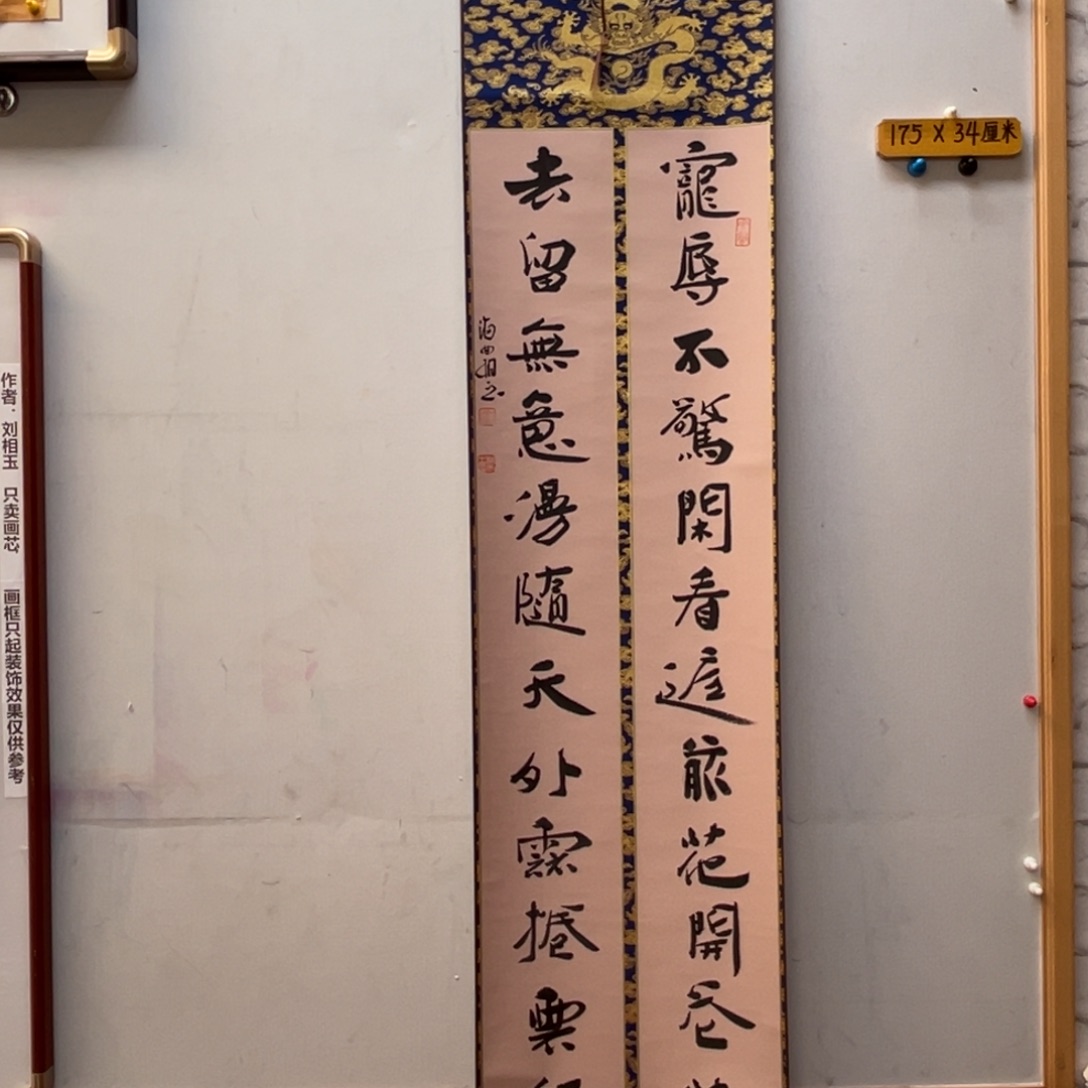 175 X 34厘米
寵辱不驚閑看庭前花開花
去留無意漫隨天外雲捲雲
作者：刘相玉 只卖画芯 画框只起装饰效果仅供参考